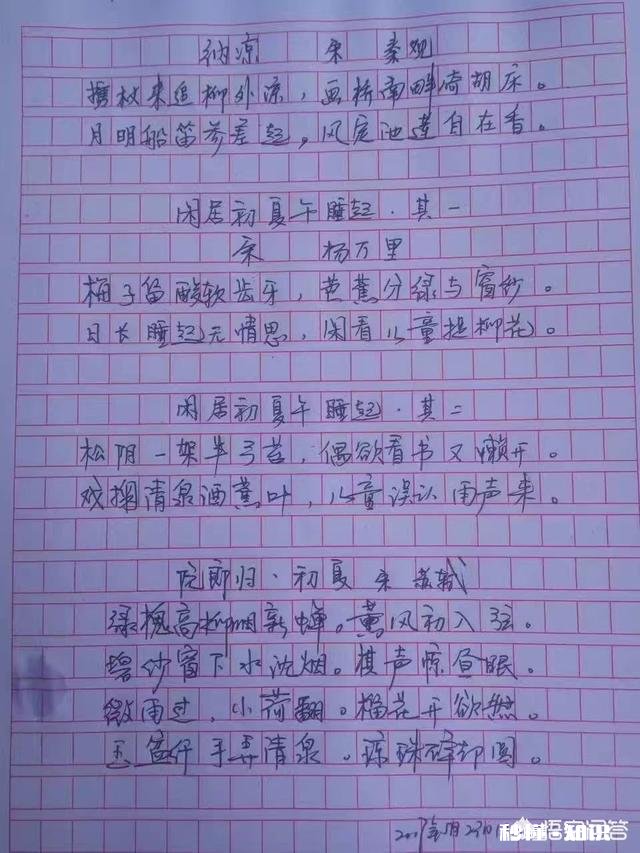 纳凉 宋 秦观
携杖来追柳外凉，画桥南畔倚胡床。
月明船笛参差起，风定池莲自在香。
闲居初夏午睡起·其一
宋 杨万里
梅子留酸软齿牙，芭蕉分绿与窗纱。
日长睡起无情思，闲看儿童捉柳花。
闲居初夏午睡起·其二
松阴一架半弓苔，偶欲看书又懒开。
戏掬清泉洒蕉叶，儿童误认雨声来。
阮郎归·初夏 宋 苏轼
绿槐高柳咽新蝉。薰风初入弦。
碧纱窗下水沈烟。棋声惊昼眠。
微雨过，小荷翻。榴花开欲然。
玉盆纤手弄清泉。琼珠碎却圆。
悟空问答